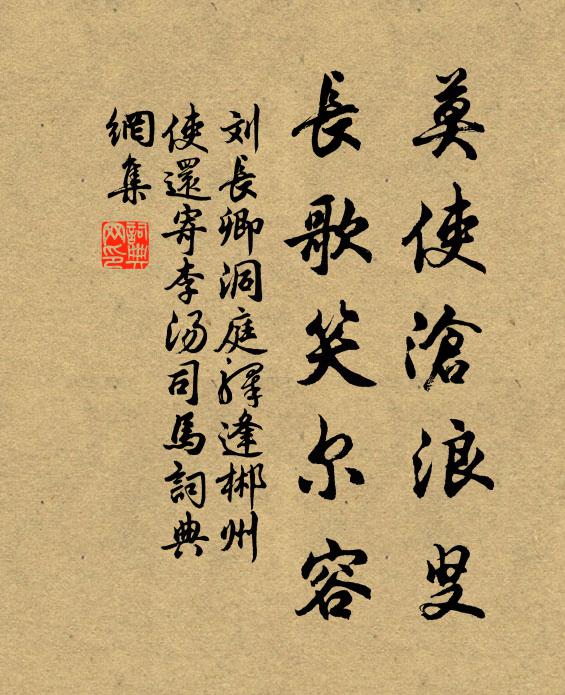 莫使滄浪叟
長歌笑尔容
刘長卿洞庭驛逢郴州
使還寄李汤司馬詞典
網集
詞典
网印